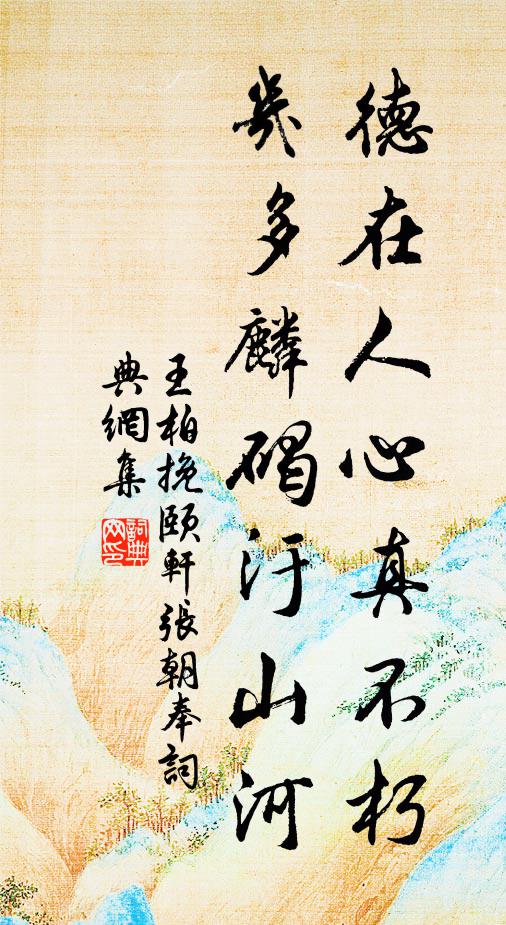 德在人心真不朽
幾多麟碣汙山河
王柏挽頤軒張朝奉詞
典網集
詞典網印